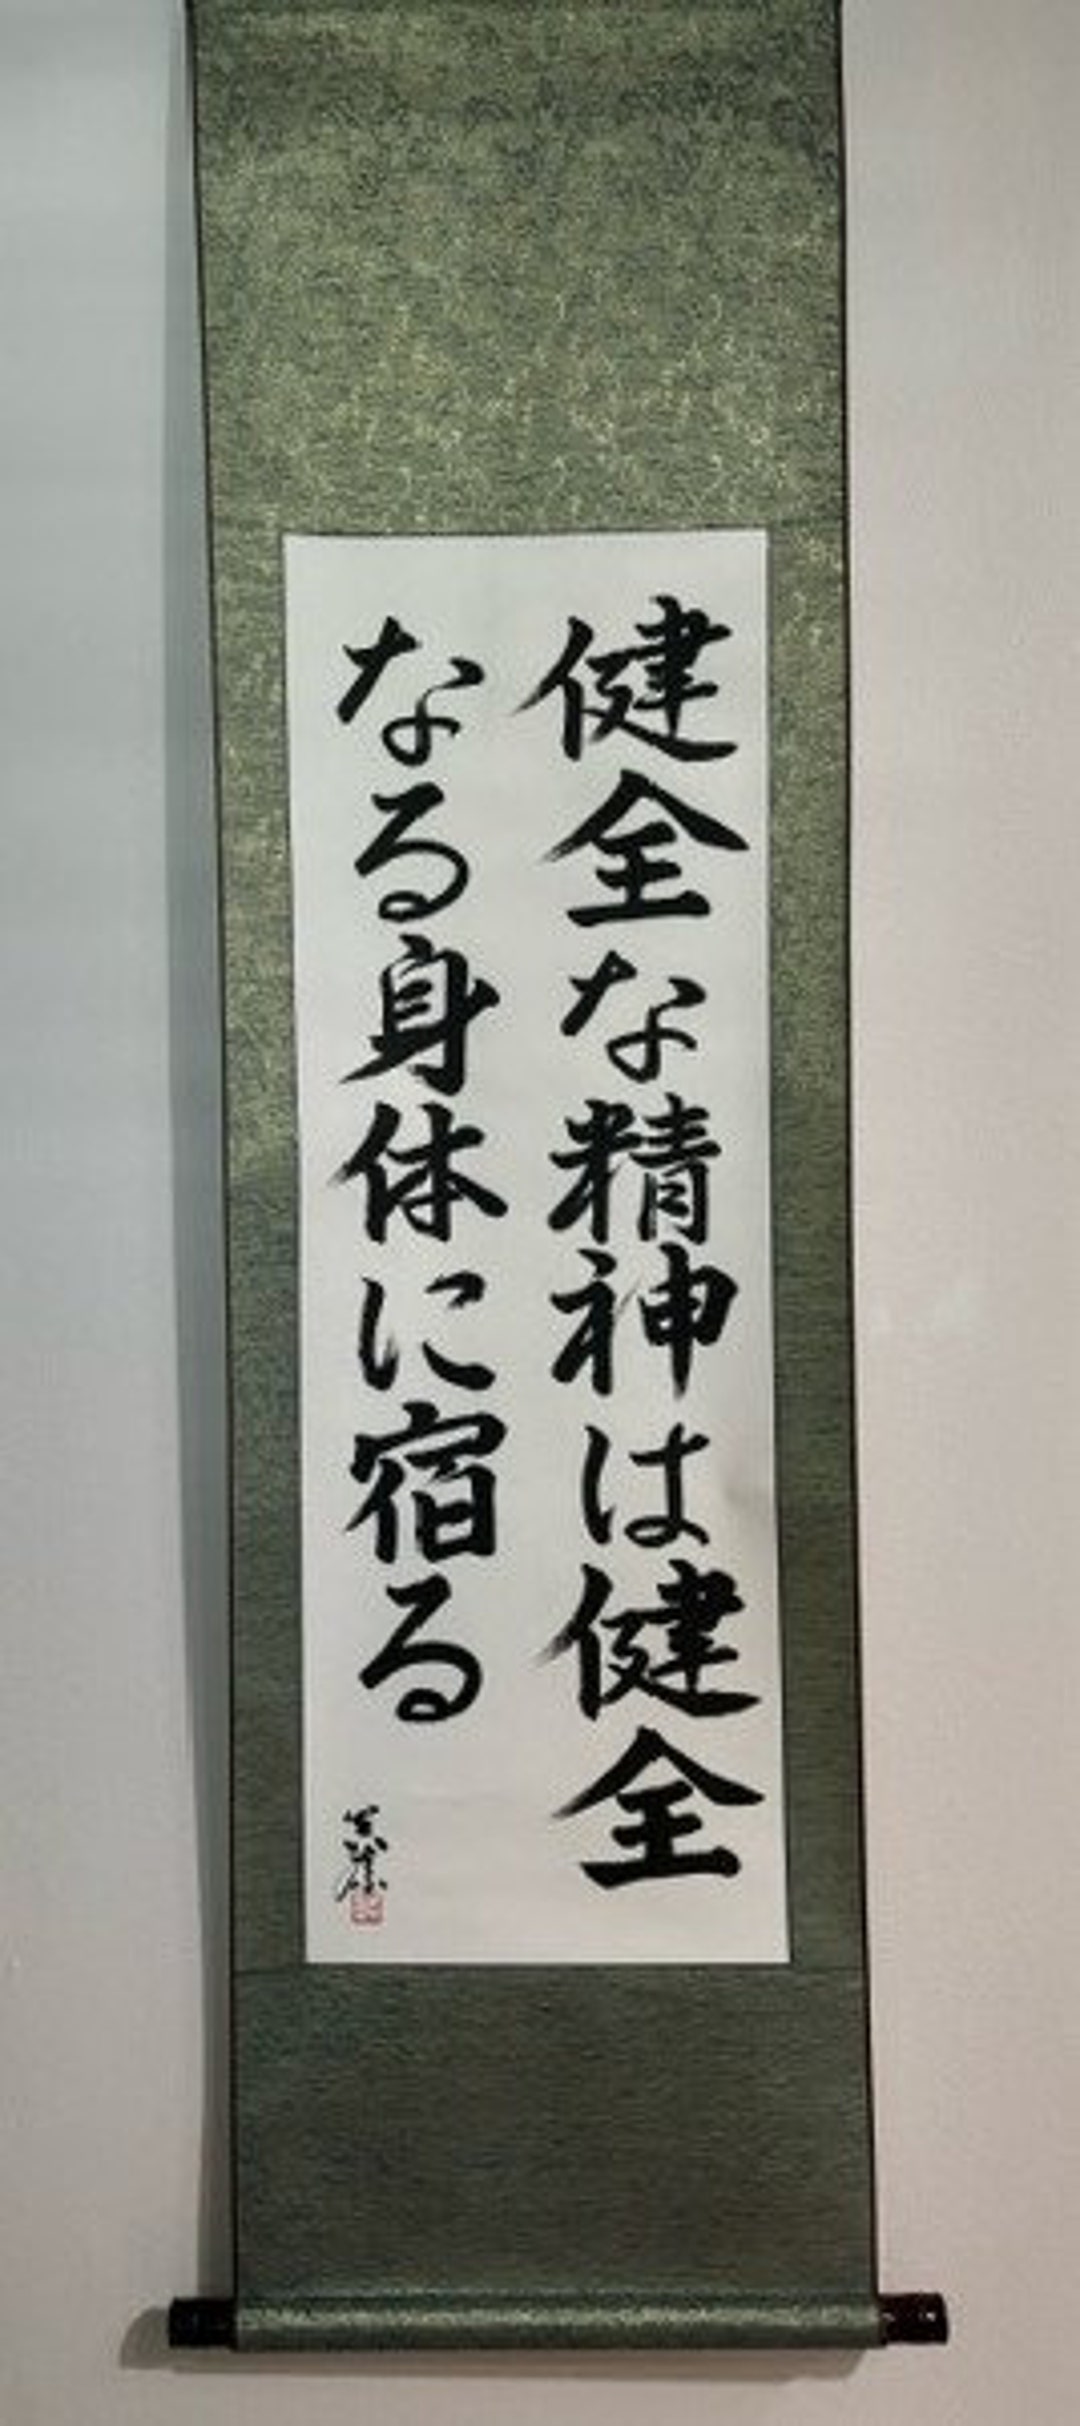 健全な精神は健全
なる身体に宿る